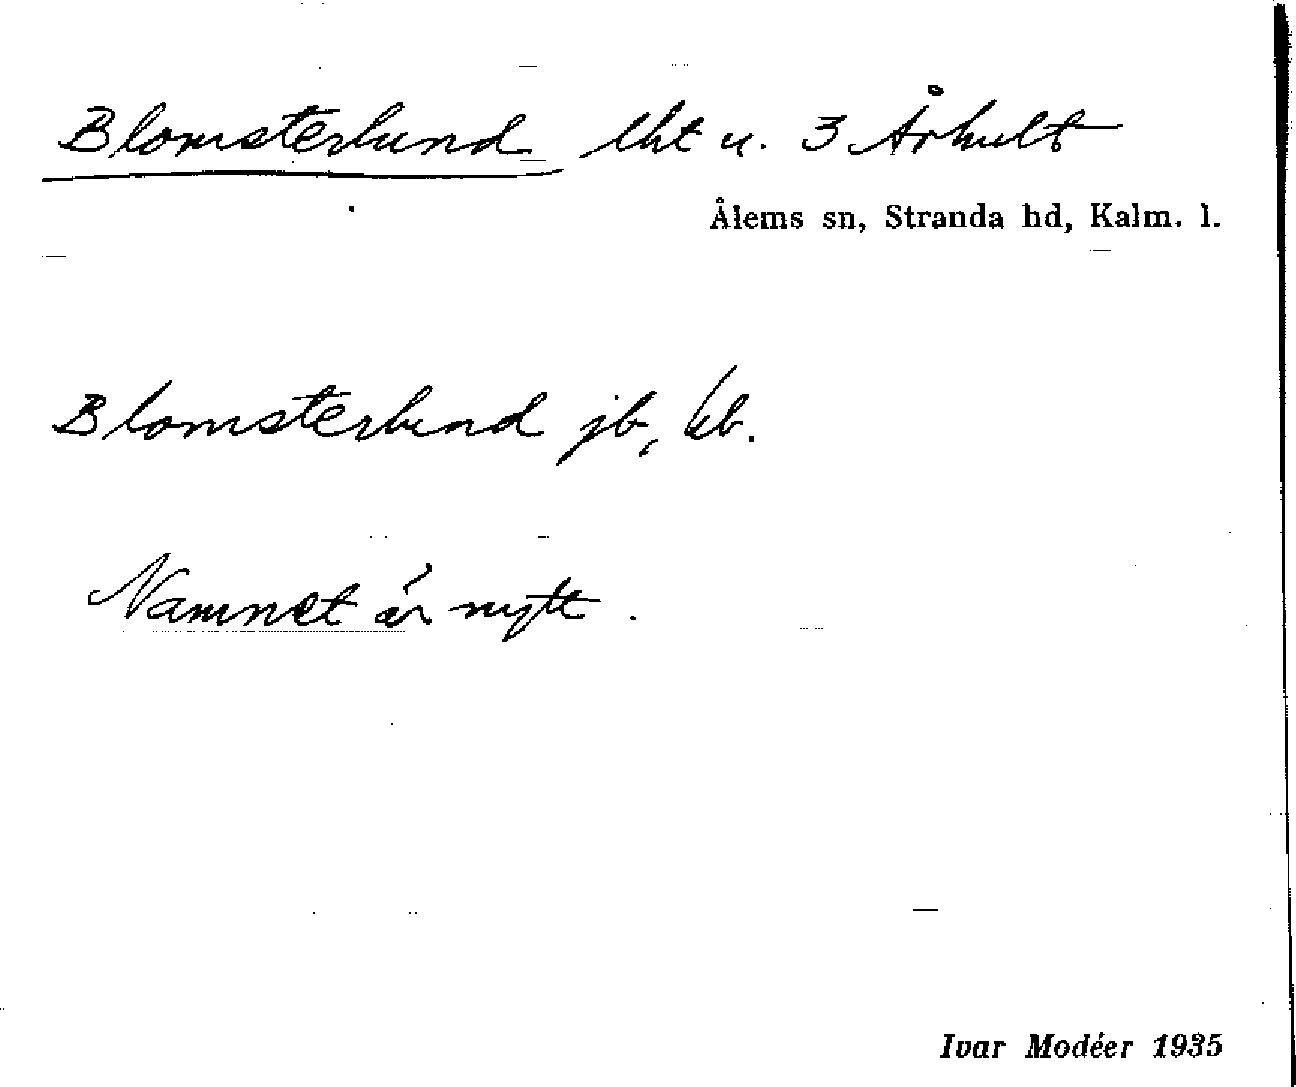 Blomsterlund lht u. 3 Århult
Ålems sn, Stranda hd, Kalm. l.
Blomsterlund jb, kb.
Namnet är nytt.
Ivar Modéer 1935